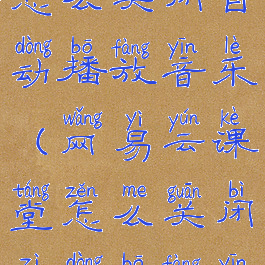 怎么关闭自
dòng bō fàng yīn lè
动播放音乐
wǎng yì yún kè
（网易云课
táng zěn me guān bì
堂怎么关闭
zì dòng bō fàng yīn